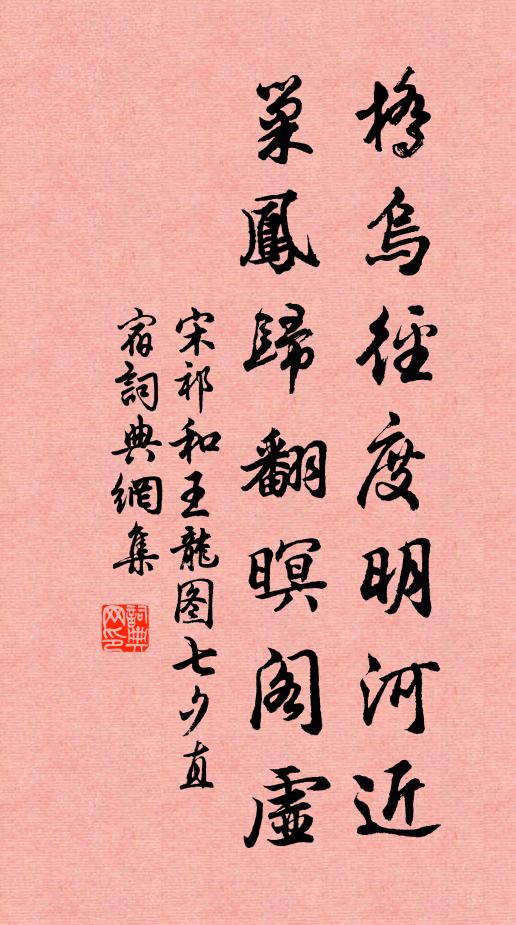 橋烏徑度明河近
巢鳳歸翻暝閣虛
宋祁和王龍图七夕直
宿詞典網集
詞典
网印